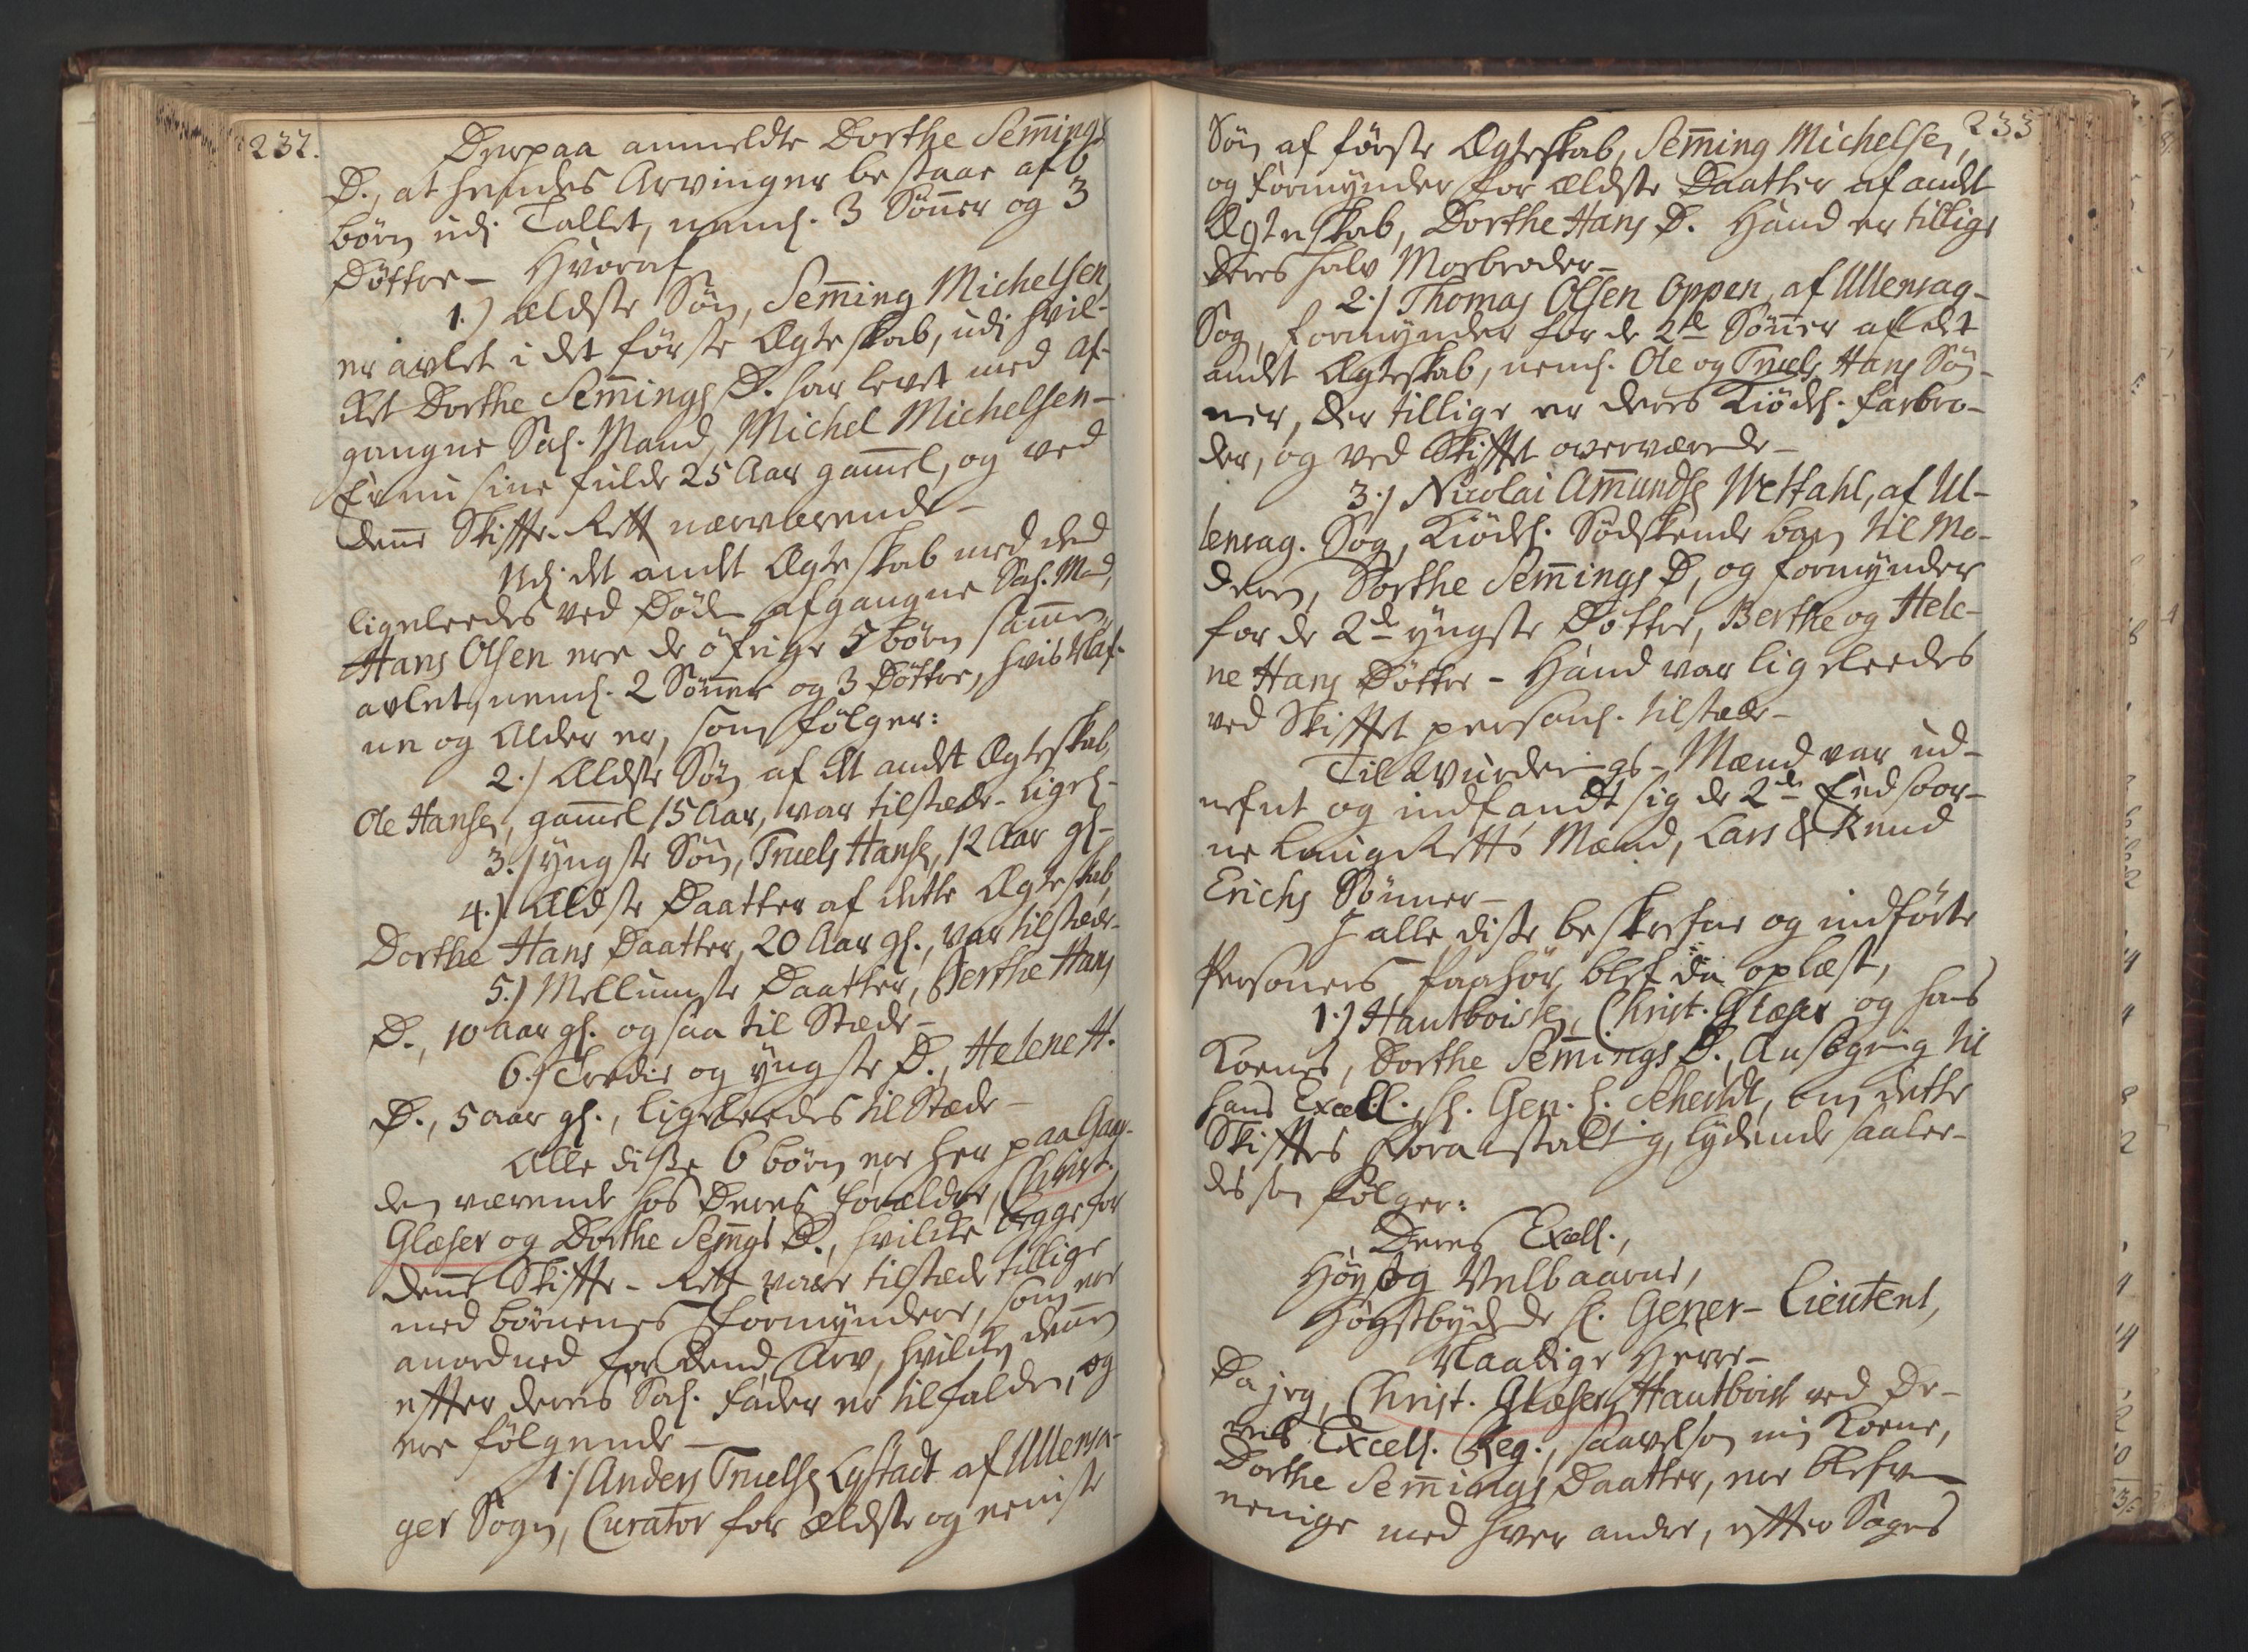 232.
Derpaa anmeldte Dorthe Sem̄ings
D., at hendes Arvinger bestaar af 6
börn udj Tallet, neml. 3 Sön̄er og 3
Döttre - Hvoraf
1.) Ældste Sön, Sem̄ing Michelsen,
er avlet i det förste Ægteskab, udj hvil-
ket Dorthe Sem̄ings D. har levet med af-
gangne Sal. Mand, Michel Michelsen -
Er nu sine fulde 25 Aar gam̄el, og ved
den̄e Skifte-Rett nærværende -
Udj det andet Ægteskab med ded
ligeleedes ved Döden afgangne Sal. Md,
Hans Olsen ere de öfrige 5 börn sam̄en
avlet, neml. 2 Sön̄er og 3 Döttre, hvis Naf-
ne og Alder er, som fölger:
2.) Ældste Sön af det andet Ægteskab,
Ole Hansen, gam̄el 15 Aar, var tilstæde - Ligel.
3.) yngste Sön, Truels Hansen, 12 Aar gl. -
4.) Ældste Daatter af dette Ægteskab,
Dorthe Hans Daatter, 20 Aar gl., var tilstæde -
5.) Mellumste Daatter, Berthe Hans
D., 10 aar gl. ogsaa til Stæde -
6.) Tredie og yngste D., Helene H.
D., 5 aar gl., ligeleedes til Stæde -
Alle diße 6 börn ere her paa Gaar-
den værende hos Deres Forældre, Christ.
Glæser og Dorthe Sem̄gs D., hvilcke begge for
den̄e Skifte-Rett vare tilstæde tillige
med börnenes Formyndere, som ere
anordned for Dend Arv, hvilcken dennem
efter deres Sal. Fader er tilfalden, og
ere fölgende -
1.) Anders Truelsen Lystadt af Ullensa-
ger Sogn, Curator for ældste og eeniste
233
Sön af förste Ægteskab, Sem̄ing Michelsen,
og Formynder for ældste Daatter af andet
Ægteskab, Dorthe Hans D. Hand er tillige
Deres halv Morbroder -
2.) Thomas Olsen Oppen, af Ullensag-
Sog, Formynder for de 2de Sön̄er af det
andet Ægteskab, neml. Ole og Truels Hans Sön-
ner, der tillige er deres Kiödl. Farbro-
der, og ved Skiftet overværende -
3.) Nicolai Am̄undsen Wettahl, af Ul-
lensag. Sog, Kiödl. Södskende barn til Mo-
deren, Dorthe Sem̄ings D, og Formynder
for de 2de yngste Döttre, Berthe og Hele-
ne Hans Döttre - Hand var ligeleedes
ved Skiftet personl. tilstæde -
Til Vurderings-Mænd var ud-
nefnt og indfandt sig de 2de Eedsoor-
ne Laug-Retts Mænd, Lars & Knud
Erichs Sönner -
I alle diße beskrefne og indförte
Personers Paahör blef da oplæst,
1.) Hautboisten, Christ. Glæser og hans
Kones, Dorthe Sem̄ings D., Ansögning til
Hans Excell. H. Gen. L. Scheildt, om dette
Skiftes Foranstaltning, lydende saale-
des som fölger:
Deres Excell.,
Höy og Velbaarne,
Högstbydende H. Gener-Lieutent,
Naadige Herre -
Da jeg, Christ. Glæser, Hautboist ved De-
res Excell. Reg., saavelsom min Kone,
Dorthe Sem̄ings Daatter, ere blefven
eenige med hver andre, efter Sogns